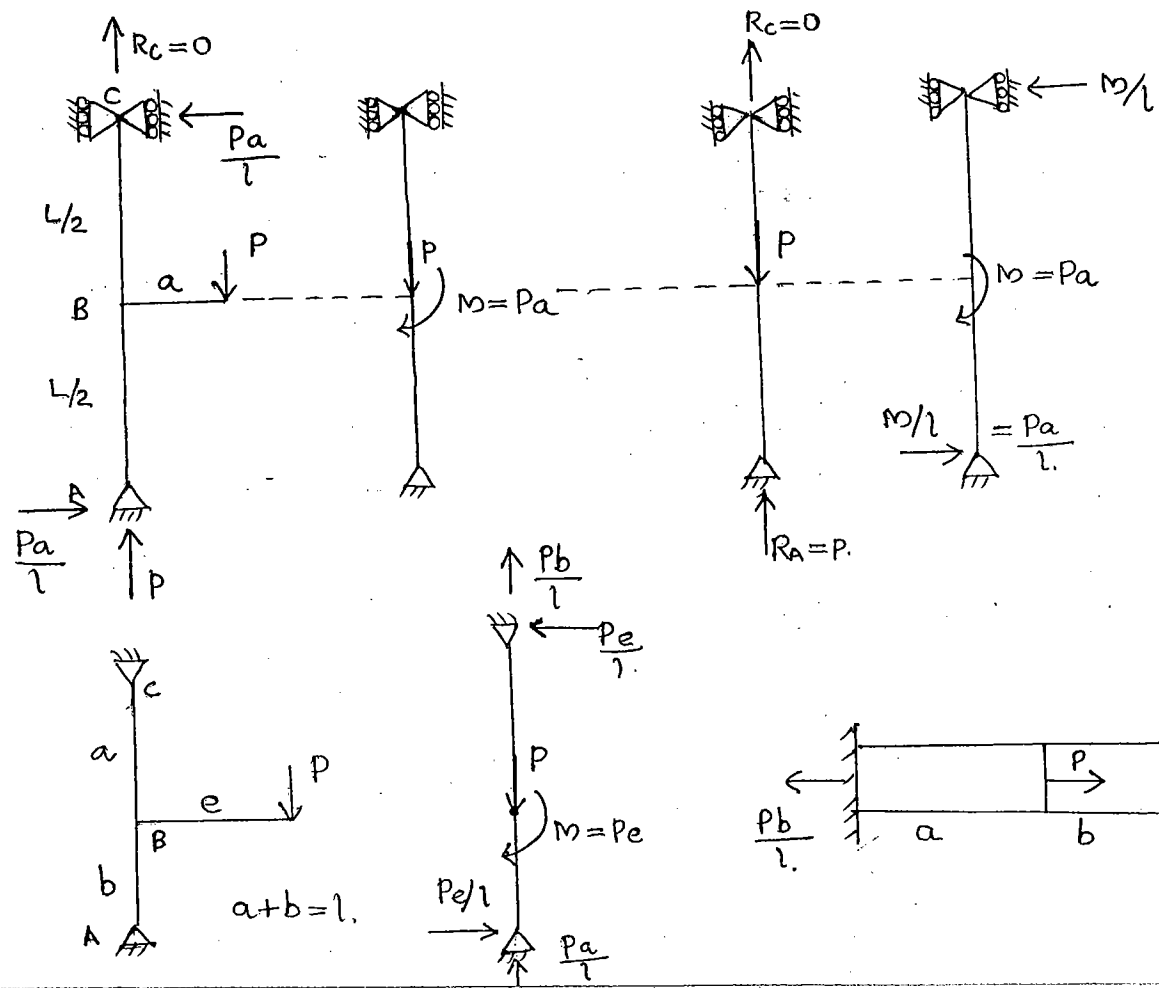 Rc=0
C
Pa/l
L/2
a
P
B
L/2
A
Pa/l
P
P
M=Pa
Rc=0
P
RA=P.
M/l
M=Pa
M/l = Pa/l.
C
a
P
e
B
b
A
a+b=l.
Pb/l
Pe/l.
P
M=Pe
Pe/l
Pa/l
P
Pb/l.
a
b